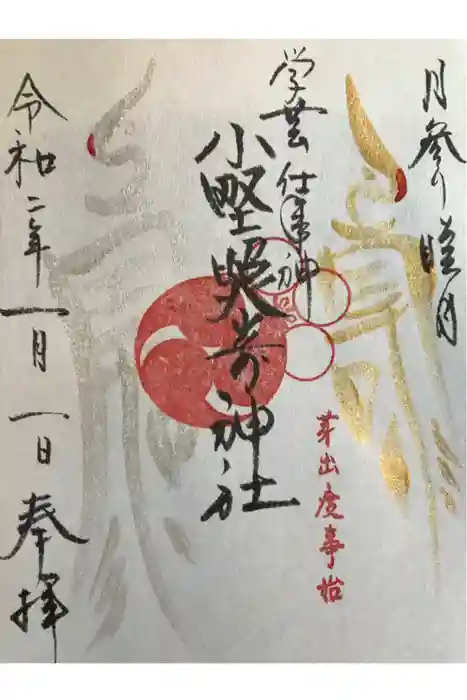 月参り 睦月
芽出度事始
学芸 仕事神
小野照崎神社
令和二年一月一日 奉拝